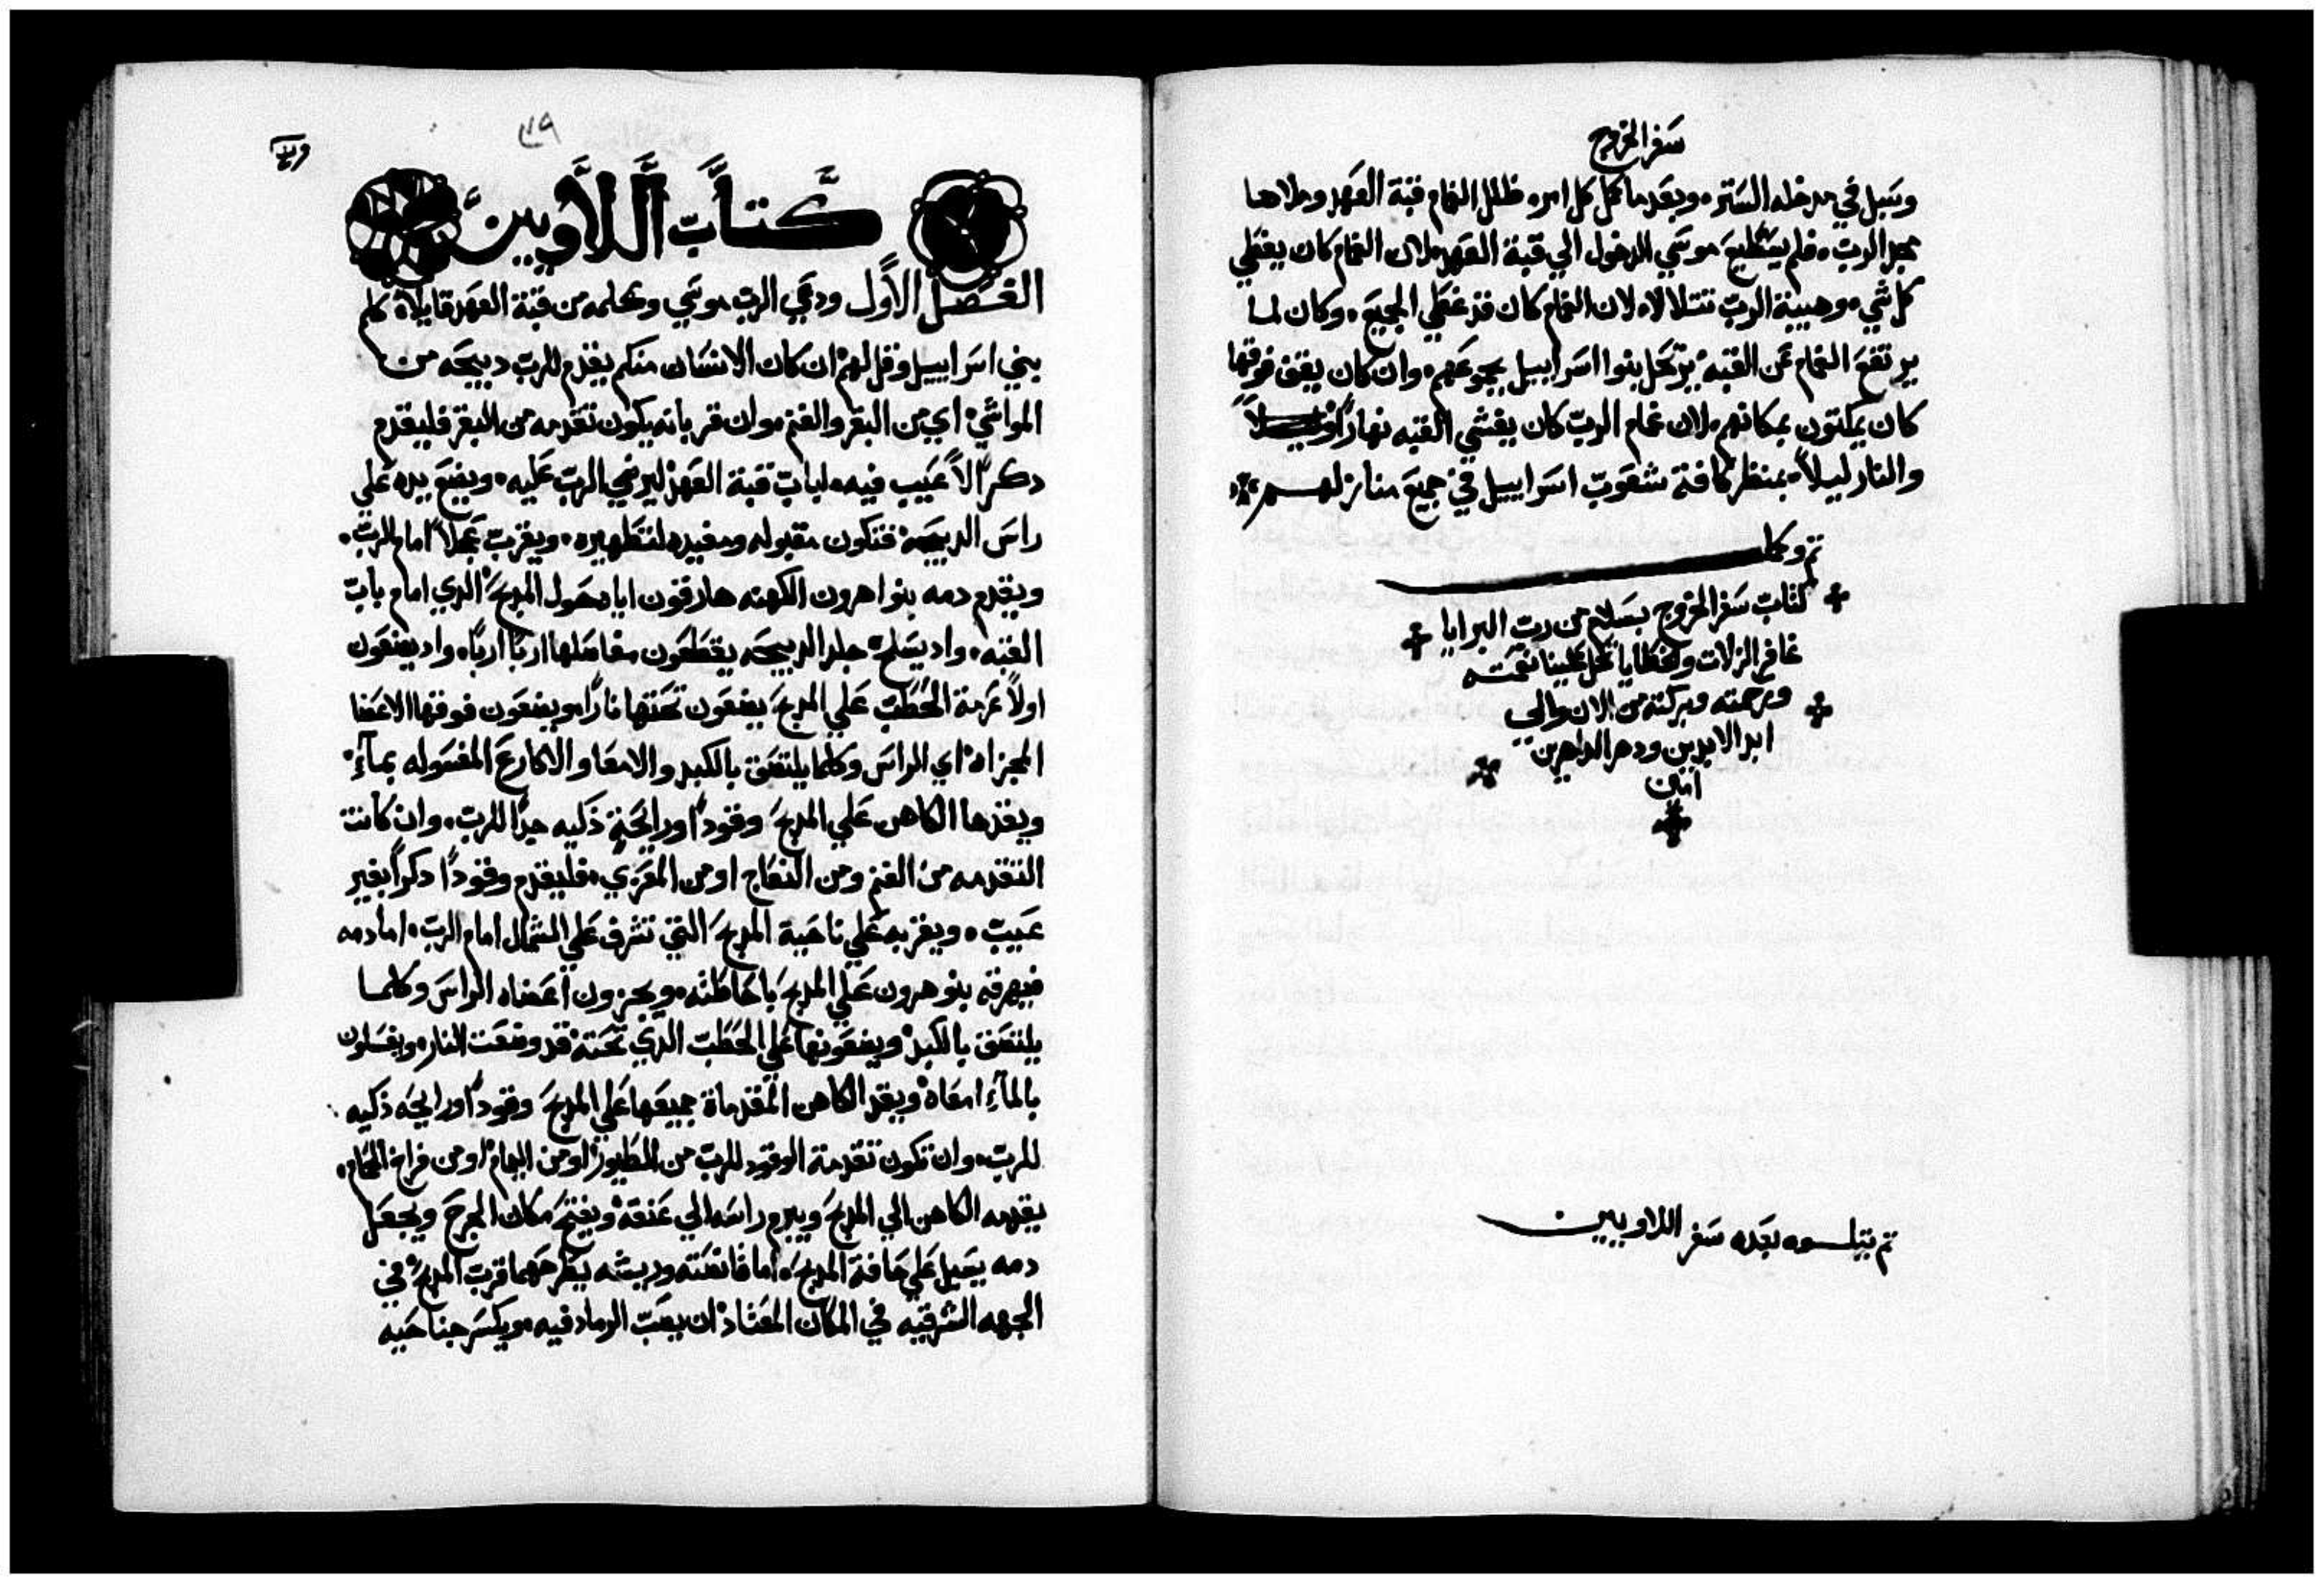 سفر الخروج
وسبل في مدخله الستر، وبعدما كمل كل امره ظلل الغمام قبة العهد وملاها
مجد الرب، فلم يستطيع موسي الدخول الي قبة العهد، لان الغمام كان يغطي
كل شي، وهيبة الرب تتلالا، لان الغمام كان قد غطي الجميع، وكان لما
يرتفع الغمام عن القبه يرتحل بنوا اسراييل بجموعهم، وان كان يقف فوقها
كان يمكتون بمكانهم، لان غمام الرب كان يغشي القبه نهاراً
والنار ليلاً بمنظر كافة شعوب اسراييل في جميع منازلهم
تم وكمل
كتاب سفر الخروج بسلام من رب البرايا
غافر الزلات والخطايا تحل علينا نعمته
ورحمته وبركته من الان والي
ابد الابدين ودهر الداهرين
امين
تم يتلوه بعده سفر اللاويين
كتاب اللاويين
الفصل الاول ودعي الرب موسي وكلمه من قبة العهد قايلاً كلم
بني اسراييل وقل لهم ان كان الانسان منكم يقدم للرب دبيحه من
المواشي اي من البقر والغنم، وان قربانه يكون تقدمه من البقر فليقدم
دكراً لا عيب فيه، لباب قبة العهد ليرضي الرب عليه، ويضع يده علي
راس الدبيحه فتكون مقبوله ومفيده لتطهيره، ويقرب عجلاً امام الرب،
ويقدم دمه بنوا هرون الكهنه هارقون اياه حول المدبح الدي امام باب
القبه، واد يسلخ جلد الدبيحه يقطعون مفاصلها ارباً ارباً، واد يضعون
اولاً عرمة الحطب علي المدبح يضعون تحتها ناراً، ويضعون فوقها الاعضا
المجزاه اي الراس وكلما يلتصق بالكبد والامعا والاكارع المغسوله بماءٍ
ويقدها الكاهن علي المدبح وقوداً ورايحةٍ ذكيه جداً للرب، وان كانت
التقدمه من الغنم ومن النعاج او من المعزي، فليقدم وقوداً دكراً بغير
عيب، ويقربه علي ناحية المدبح التي تشرف علي الشمال امام الرب، اما دمه
فيهرقه بنو هرون علي المدبح باحاطته، ويجزون اعضاه الراس وكلما
يلتصق بالكبد ويضعونها علي الحطب الدي تحته قد وضعت النار، ويغسلون
بالماءِ امعاه ويقد الكاهن المقدماة جميعها علي المدبح وقوداً ورايحه ذكيه
للرب، وان تكون تقدمة الوقود للرب من الطيور او من اليمام او من فراخ الحمام،
يقدمه الكاهن الي المدبح ويبرم راسه الي عنقه ويفتح مكان الجرح ويجعل
دمه يسيل علي حافة المدبح، اما قانصته وريشه يطرحهما قرب المدبح في
الجهه الشرقيه في المكان المعتاد ان يصب الرماد فيه، ويكسر جناحيه